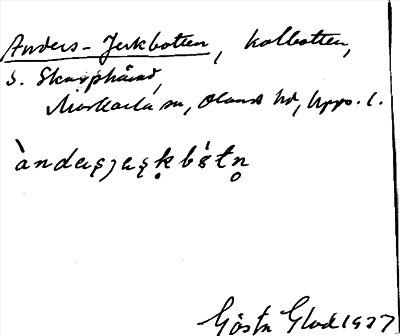 Anders-Jerkbotten, kolbotten,
S. Skarphård,
Morkarla sn, Olands hd, Upps. l.
àndeṣjæṣkbótn̥
Gösta Glad 1927